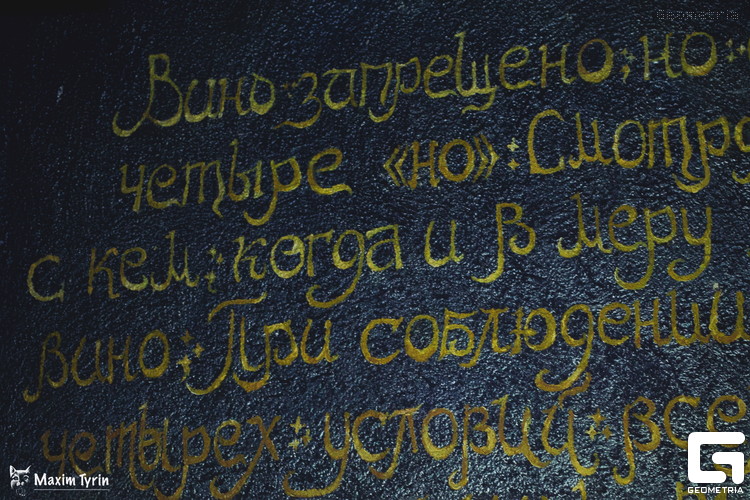 Geometria
Вино запрещено, но
четыре «но»: Смотря
с кем, когда и в меру
вино. При соблюдении
четырех условий все
Maxim Tyrin
G
GEOMETRIA